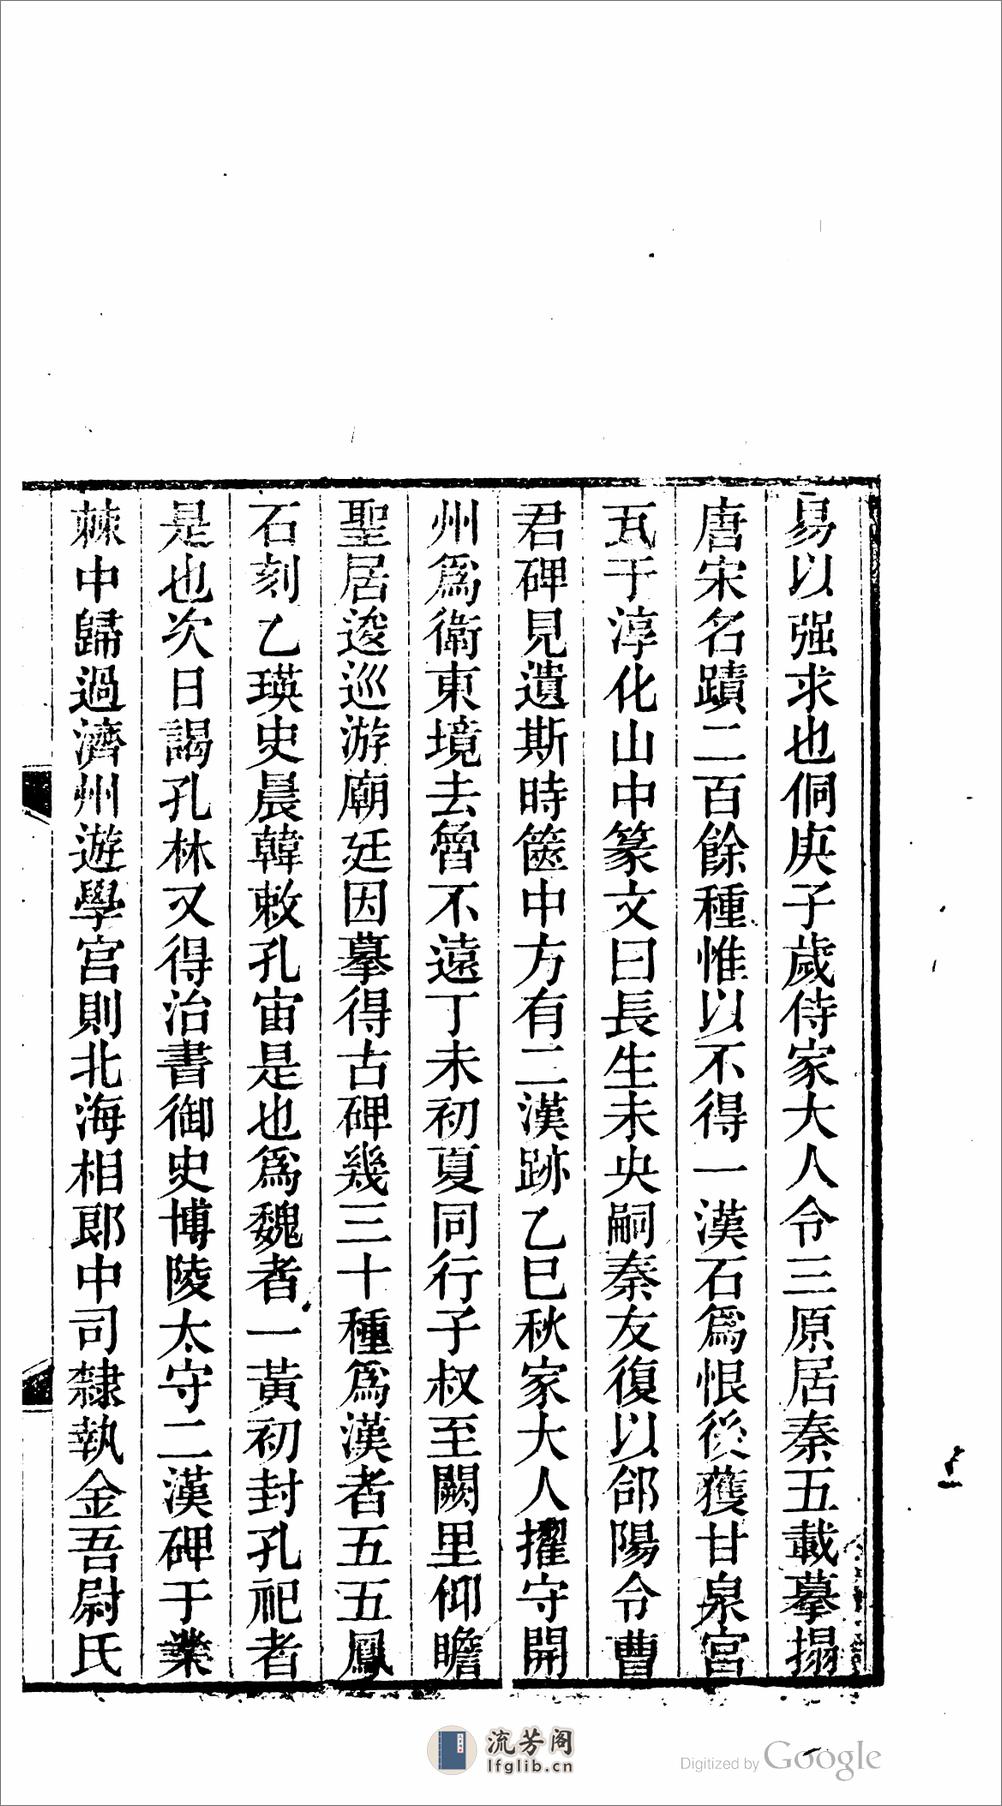 易以强求也侗庚子歲侍家大人令三原居秦五載摹搨
唐宋名蹟二百餘種惟以不得一漢石爲恨後獲甘泉宮
瓦于淳化山中篆文曰長生未央嗣秦友復以郃陽令曹
君碑見遺斯時篋中方有二漢跡乙巳秋家大人擢守開
州爲衛東境去魯不遠丁未初夏同行子叔至闕里仰瞻
聖居逡巡游廟廷因摹得古碑幾三十種爲漢者五五鳳
石刻乙瑛史晨韓敕孔宙是也爲魏者一黃初封孔祀者
是也次日謁孔林又得治書御史博陵太守二漢碑于叢
棘中歸過濟州遊學宮則北海相郎中司隸執金吾尉氏
流芳阁
lfglib.cn
Digitized by Google